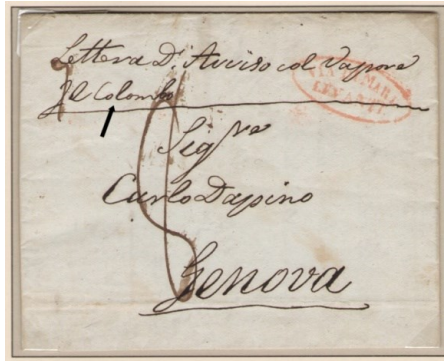 Lettera D'Avviso col Vapore
Il Colombo
VIA DI MARE
LEVANTE
Sigre
Carlo Dapino
Genova